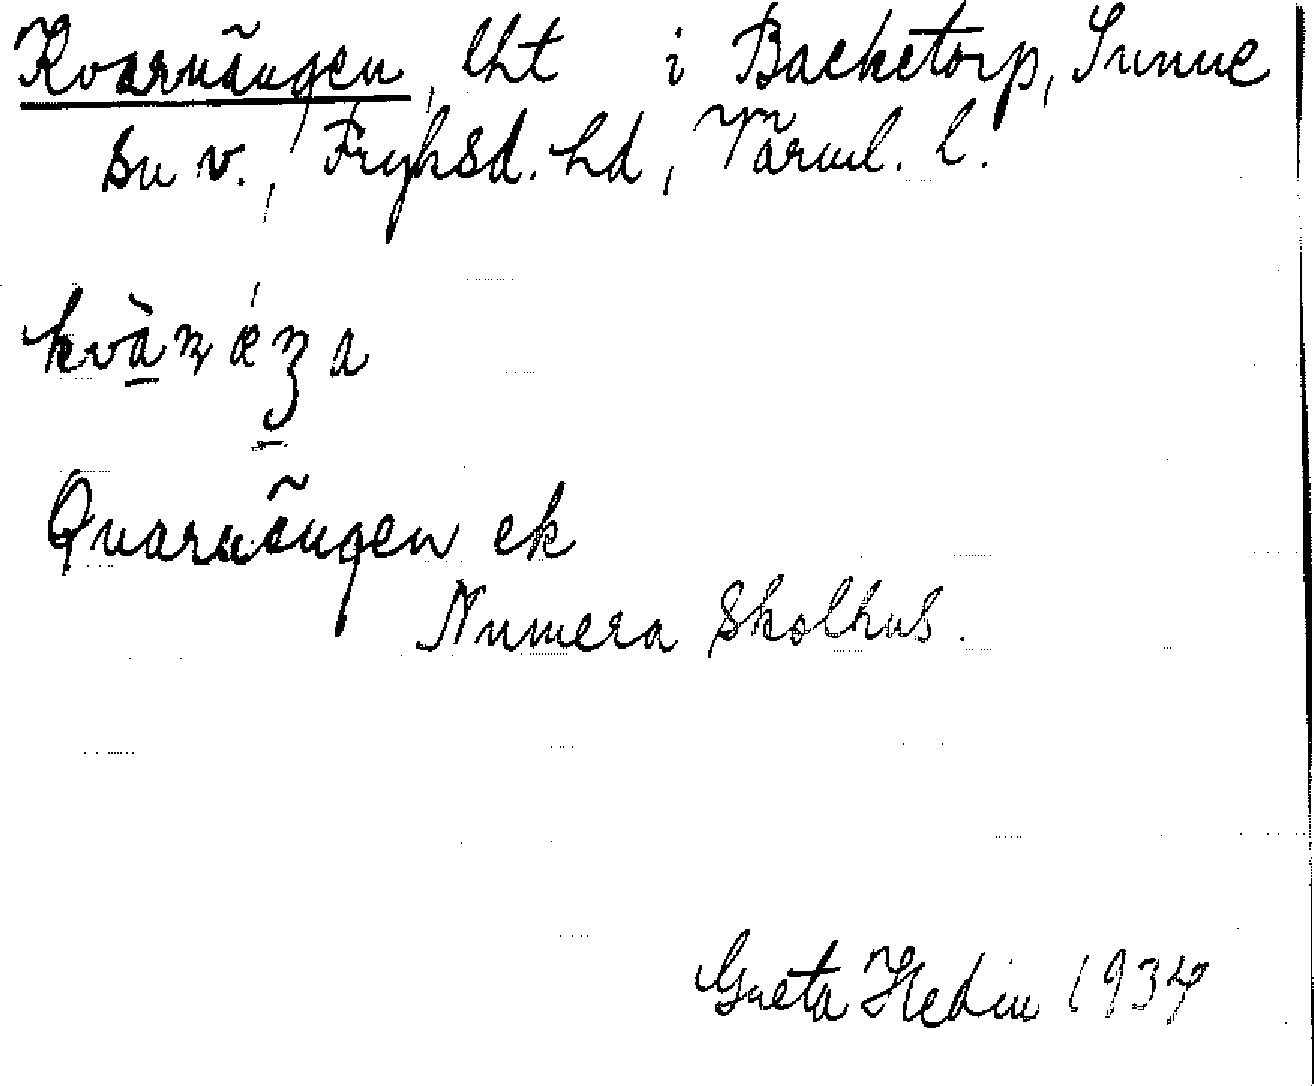 Kvarnängen, lht i Backetorp, Sunne
sn v., Fryksd. hd, Värml. l.
Quarnängen ek
Numera Skolhus.
Greta Hedin 1934